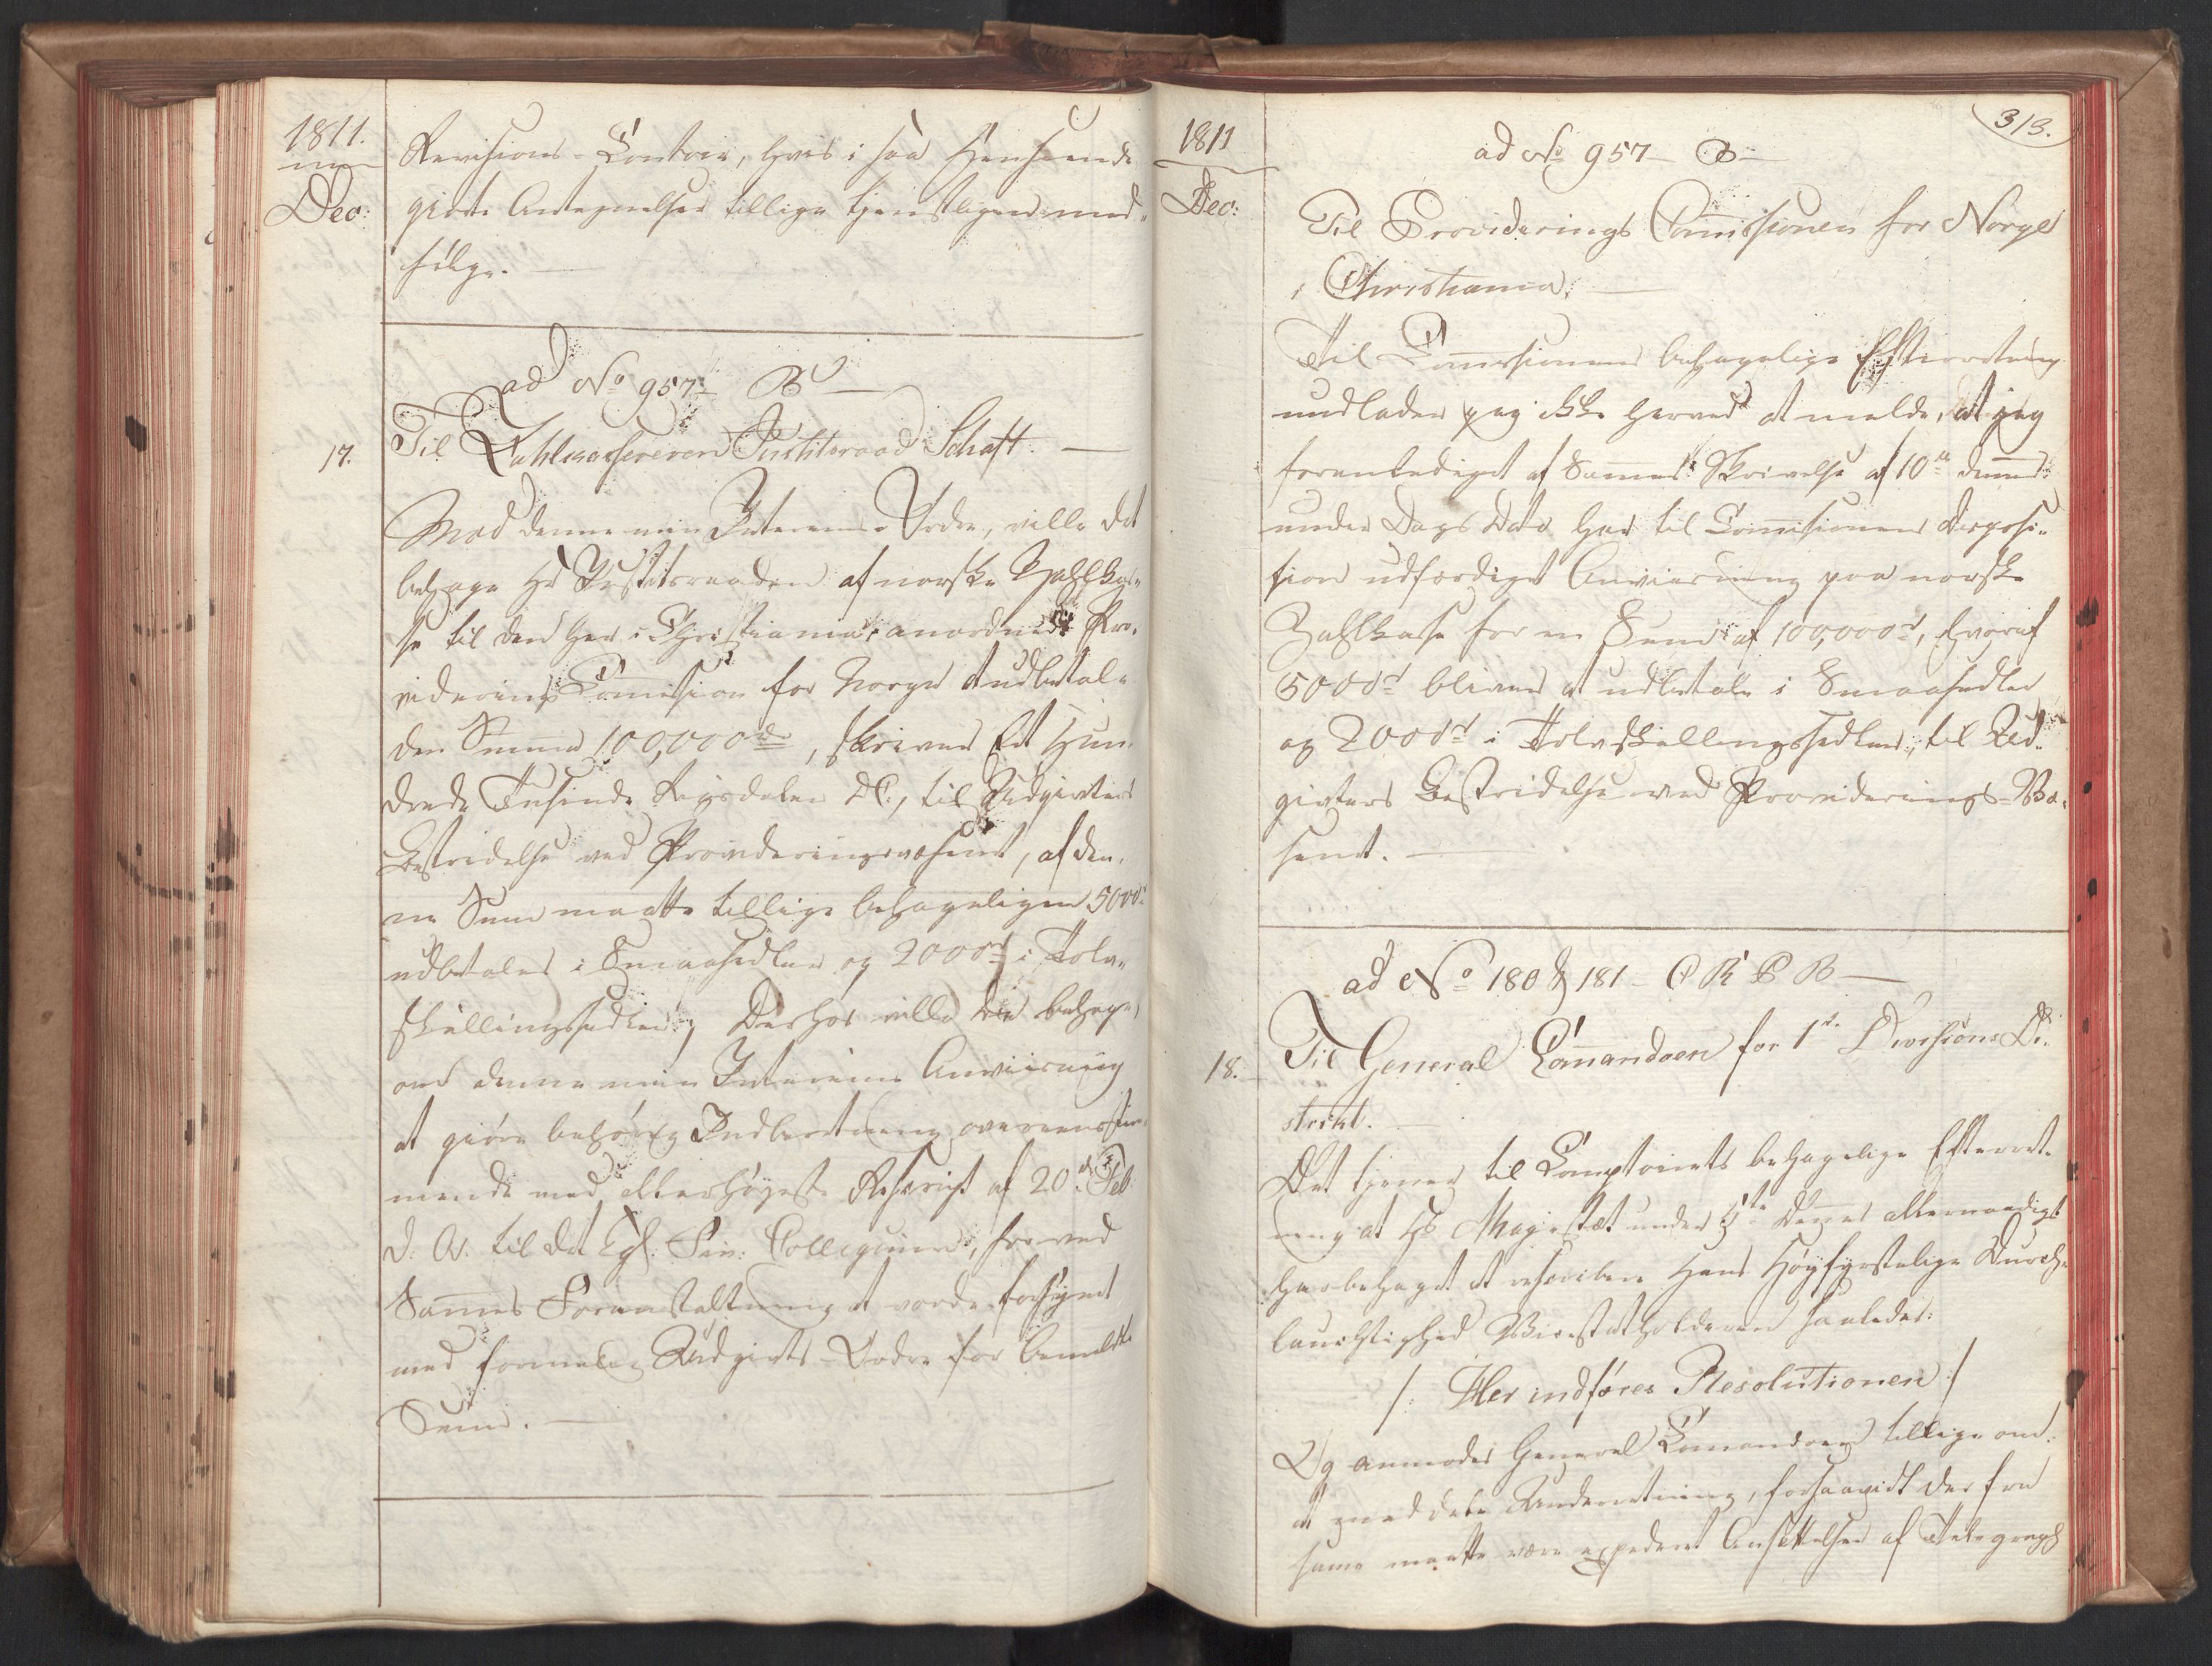 1811.
Dec:
Revisions-Contoir, hvis i saa Henseende
giorte Antegnelser tillige tjenstligen med-
følge.
ad No 957 B
17.
Til Zahlcassereren Justitsraad Schaft.
Mod denne min Interims-Ordre, ville det
behage Hr Justitsraaden af norske Zahlkas-
se til den her i Christiania anordnede Pro-
viderings Commission for Norge at udbetale
den Summa 100,000 rd, skriver Et Hun-
drede Tusinde Rigsdaler DC., til Udgivters
Bestridelse ved Provideringsvæsenet, af den-
ne Sum maatte tillige behageligen 5000 rd
udbetales i Smaasedler og 2000 rd i Tolv-
skillingssedler; Derhos ville De behage,
om denne min Interims Anviisning
at giøre behørig Indberetning overeensstem-
mende med allerhøyeste Rescript af 20de Feb:
d: A. til det Kgl: Fin: Collegium, for ved
Sammes Foranstaltning at vorde forsynet
med formelig Udgivts-Ordre for bemeldte
Sum.
1811
Dec:
313.
ad No 957 B
Til Providerings Commissionen for Norge
i Christiania.
Til Commissionens behagelige Efterretning
undlader jeg ikke herved at melde, at jeg
foranlediget af Sammes Skrivelse af 10de dennes
under Dags Dato har til Commissionens Disposi-
tion udfærdiget Anviisning paa norske
Zahlkasse for en Sum af 100,000 rd, hvoraf
5000 rd bliver at udbetale i Smaasedler
og 2000 rd i Tolvskillingssedler, til Ud-
givters Bestridelse ved Providerings-Væ-
senet.
ad No 180 & 181 - C R P B
18.
Til General Commandoen for 1ste Divisions Di-
strikt.
Det tjener til Comptoirets behagelige Efterret-
ning at Hs Majestæt under 5te dennes allernaadigst
har behaget at rescribere Hans Høyfyrstelige Durch-
lauchtighed Vicestatholderen saaledes:
/: Her indføres Resolutionen :/
Og anmodes General Commandoen tillige om
at meddele Underretning, forsaavidt der fra
samme maatte være expederet Ansættelser af Telegraph